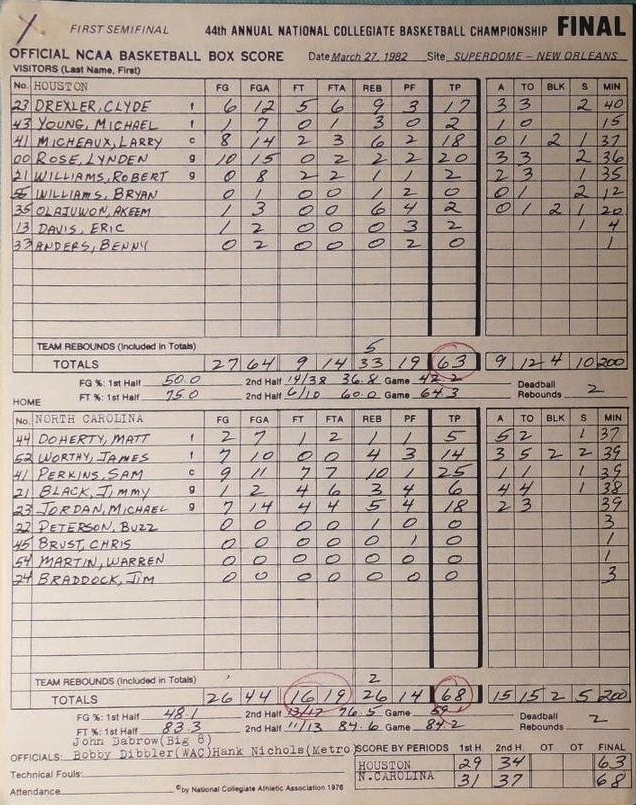 X FIRST SEMIFINAL 44th ANNUAL NATIONAL COLLEGIATE BASKETBALL CHAMPIONSHIP FINAL
OFFICIAL NCAA BASKETBALL BOX SCORE Date March 27, 1982 Site SUPERDOME - NEW ORLEANS
VISITORS (Last Name, First)
No. HOUSTON FG FGA FT FTA REB PF TP A TO BLK S MIN
23 DREXLER, CLYDE f 6 12 5 6 9 3 17 3 3 2 40
43 YOUNG, MICHAEL f 1 7 0 1 3 0 2 1 0 15
41 MICHEAUX, LARRY c 8 14 2 3 6 2 18 0 1 2 1 37
00 ROSE, LYNDEN g 10 15 0 2 2 2 20 3 3 2 36
21 WILLIAMS, ROBERT g 0 8 2 2 1 1 2 2 3 1 35
55 WILLIAMS, BRYAN 0 1 0 0 1 2 0 0 1 2 12
35 OLAJUWON, AKEEM 1 3 0 0 6 4 2 0 1 2 1 20
13 DAVIS, ERIC 1 2 0 0 0 3 2 1 4
33 ANDERS, BENNY 0 2 0 0 0 2 0 1
TEAM REBOUNDS (Included in Totals) 5
TOTALS 27 64 9 14 33 19 63 9 12 4 10 200
FG %: 1st Half 50.0 2nd Half 14/38 36.8 Game 42.2 Deadball
FT %: 1st Half 75.0 2nd Half 6/10 60.0 Game 64.3 Rebounds 2
HOME
No. NORTH CAROLINA FG FGA FT FTA REB PF TP A TO BLK S MIN
44 DOHERTY, MATT f 2 7 1 2 1 1 5 5 2 1 37
52 WORTHY, JAMES f 7 10 0 0 4 3 14 3 5 2 2 39
41 PERKINS, SAM c 9 11 7 7 10 1 25 1 1 1 39
21 BLACK, JIMMY g 1 2 4 6 3 4 6 4 4 1 38
23 JORDAN, MICHAEL g 7 14 4 4 5 4 18 2 3 39
22 PETERSON, BUZZ 0 0 0 0 1 0 0 3
45 BRUST, CHRIS 0 0 0 0 0 1 0 1
54 MARTIN, WARREN 0 0 0 0 0 0 0 1
24 BRADDOCK, JIM 0 0 0 0 0 0 0 3
TEAM REBOUNDS (Included in Totals) 2
TOTALS 26 44 16 19 26 14 68 15 15 2 5 200
FG %: 1st Half 48.1 2nd Half 13/17 76.5 Game 59.1 Deadball
FT %: 1st Half 83.3 2nd Half 11/13 84.6 Game 84.2 Rebounds 2
John Dabrow(Big 8)
OFFICIALS: Bobby Dibbler(WAC)Hank Nichols(Metro) SCORE BY PERIODS 1st H. 2nd H. OT OT FINAL
HOUSTON 29 34 63
Technical Fouls: N.CAROLINA 31 37 68
Attendance ©by National Collegiate Athletic Association 1976